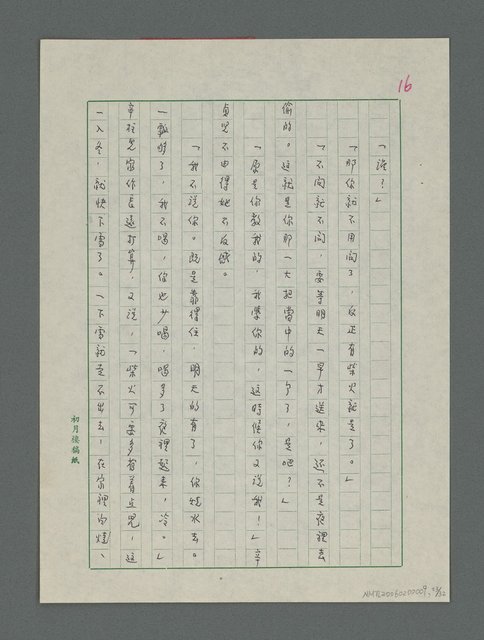 16
「誰？」
「那你就不用問了，反正有柴火就是了。」
「不問就不問，要等明天一早才送來，還不是夜裡去
偷的。這就是你那一大把當中的一個了，是吧？」
「原是你教我的，我學你的，這時候你又說我！」辛
貞兒不由得她不反感。
「我不說你。既是靠得住，明天的有了，你燒水去。
一瓢夠了，我不喝，你也少喝，喝多了夜裡起來，冷。」
辛老兒當作長遠打算，又說，「柴火可要多省著點兒，這
一入冬，就快下雪了。一下雪就走不出去，在家裡內燒、
初月樓稿紙
NMTL20060200009